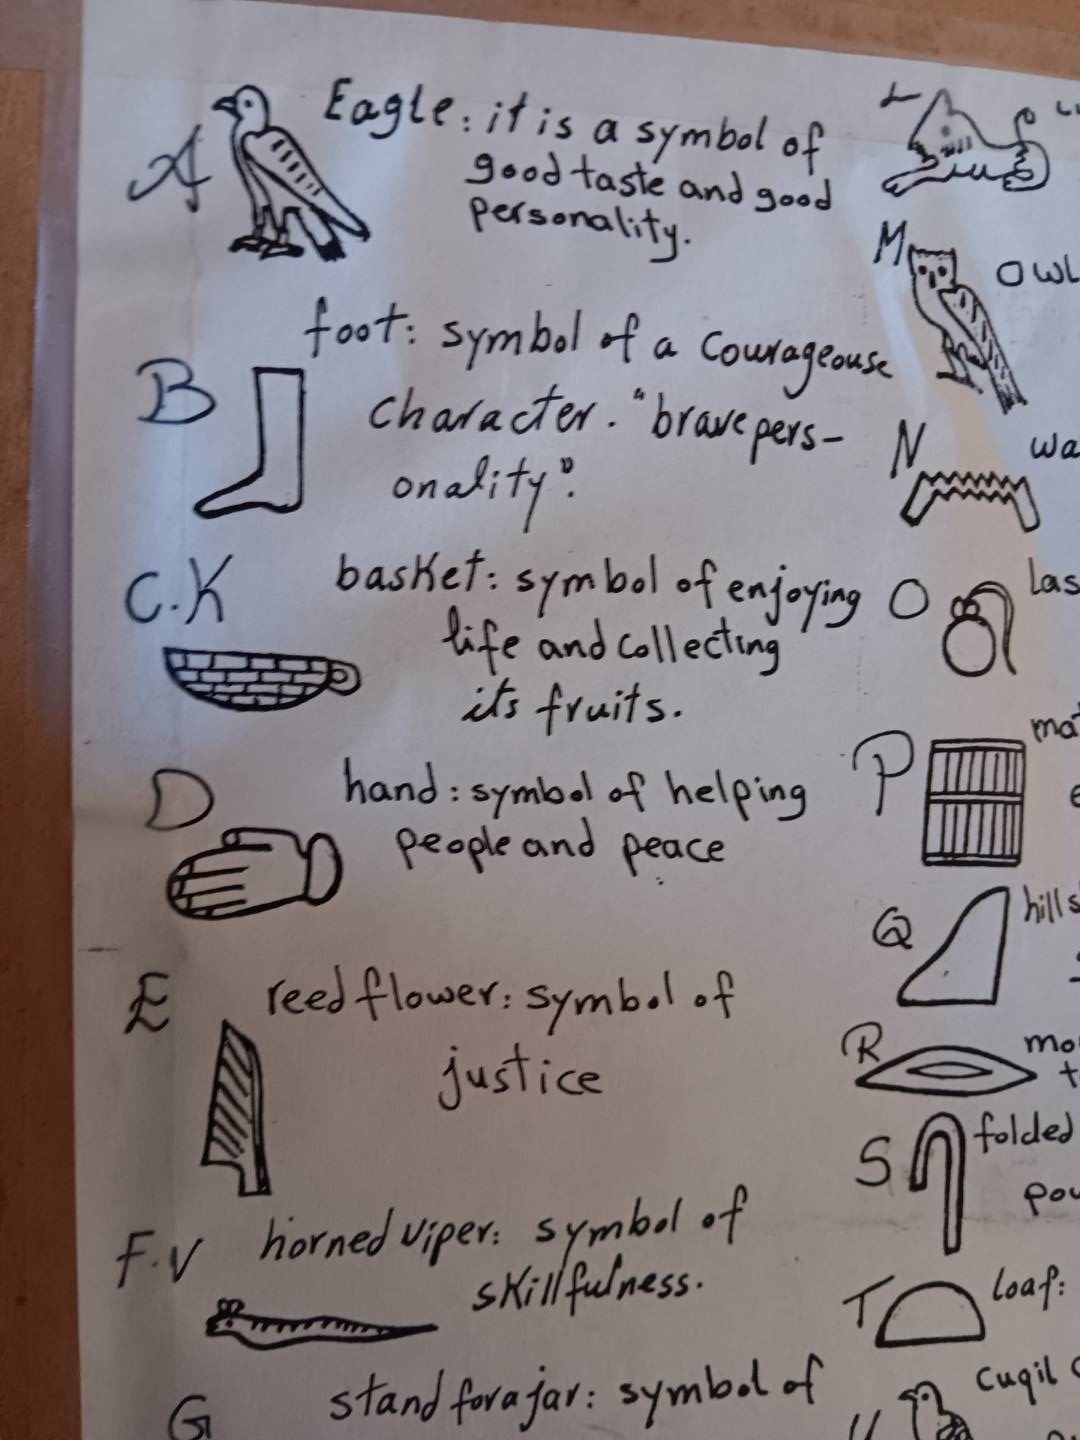 A
Eagle: it is a symbol of
good taste and good
personality.
B
foot: symbol of a Courageouse
Character. "brave pers-
onality".
C.K
basket: symbol of enjoying
life and collecting
its fruits.
D
hand: symbol of helping
people and peace
E
reed flower: symbol of
justice
F.V
horned viper: symbol of
skillfulness.
G
stand for a jar: symbol of
L
M
OWL
N
O
P
Q
hills
R
S
folded
T
loaf: